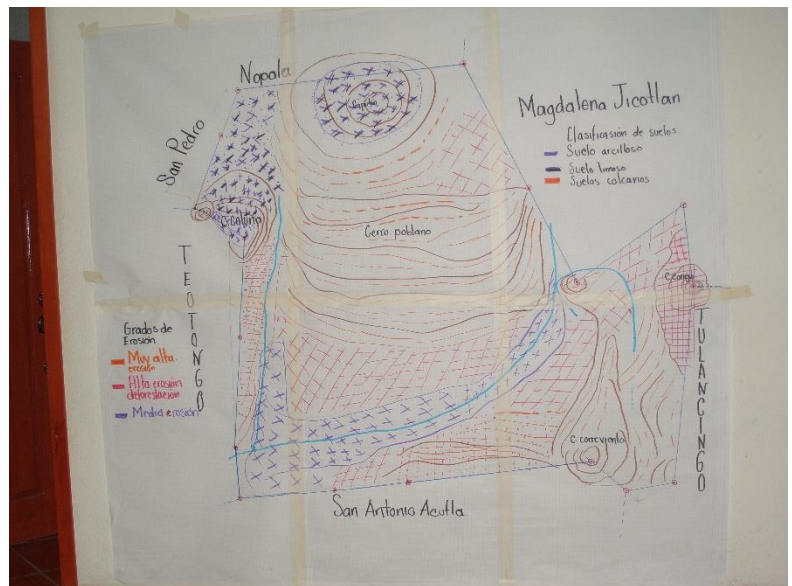 Nopala
San Pedro
Magdalena Jicotlan
Clasificasión de suelos
Suelo arcilloso
Suelo limoso
Suelos calcarios
Cerro poblano
TEOTONGO
TULANCINGO
Grados de
Erosión
Muy alta
erosión
Alta erosión
deforestación
Media erosión
San Antonio Acutla